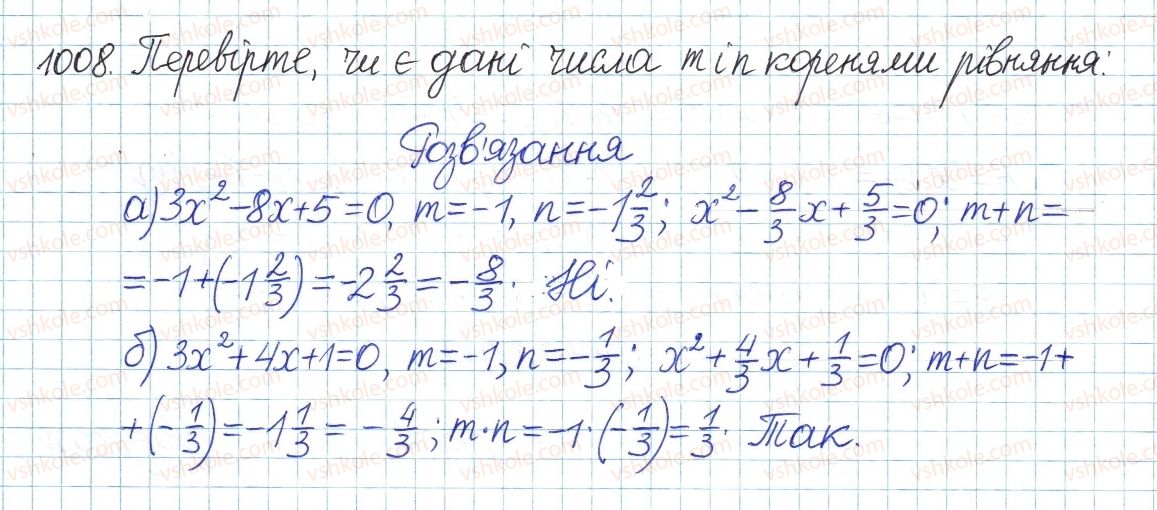 1008. Перевірте, чи є дані числа m і n коренями рівняння:
Розв'язання
а) 3x² - 8x + 5 = 0, m = -1, n = -1 2/3; x² - 8/3 x + 5/3 = 0; m + n =
= -1 + (-1 2/3) = -2 2/3 = -8/3. Ні.
б) 3x² + 4x + 1 = 0, m = -1, n = -1/3; x² + 4/3 x + 1/3 = 0; m + n = -1 +
+ (-1/3) = -1 1/3 = -4/3; m · n = -1 · (-1/3) = 1/3. Так.